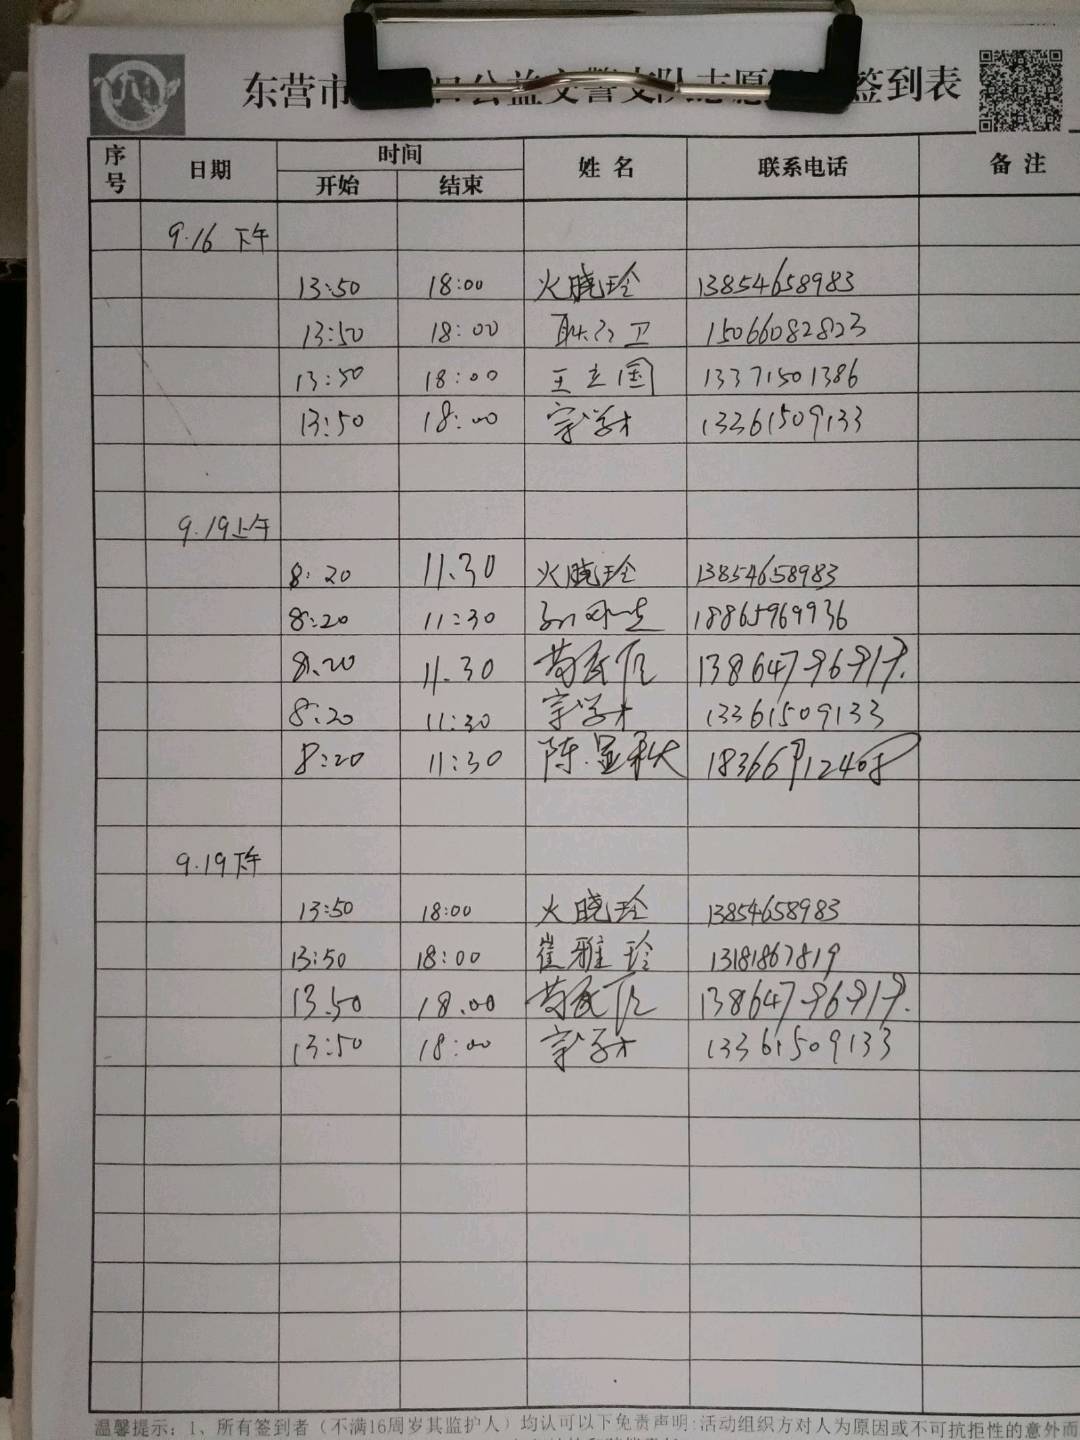 东营市 口公益交警支队志愿 签到表
序号 日期 时间 姓名 联系电话 备注
开始 结束
9.16 下午
13:50 18:00 火晓玲 13854658983
13:50 18:00 卫 15066082823
13:50 18:00 王立国 13371501386
13:50 18:00 宗学才 13361509133
9.19上午
8:20 11.30 火晓玲 13854658983
8:20 11:30 18865969936
8.20 11.30
8:20 11:30 宗学才 13361509133
8:20 11:30 陈显秋
9.19下午
13:50 18:00 火晓玲 13854658983
13:50 18:00 崔雅玲 13181867819
13.50 18.00
13:50 18:00 宗学才 13361509133
温馨提示：1、所有签到者（不满16周岁其监护人）均认可以下免责声明:活动组织方对人为原因或不可抗拒性的意外而